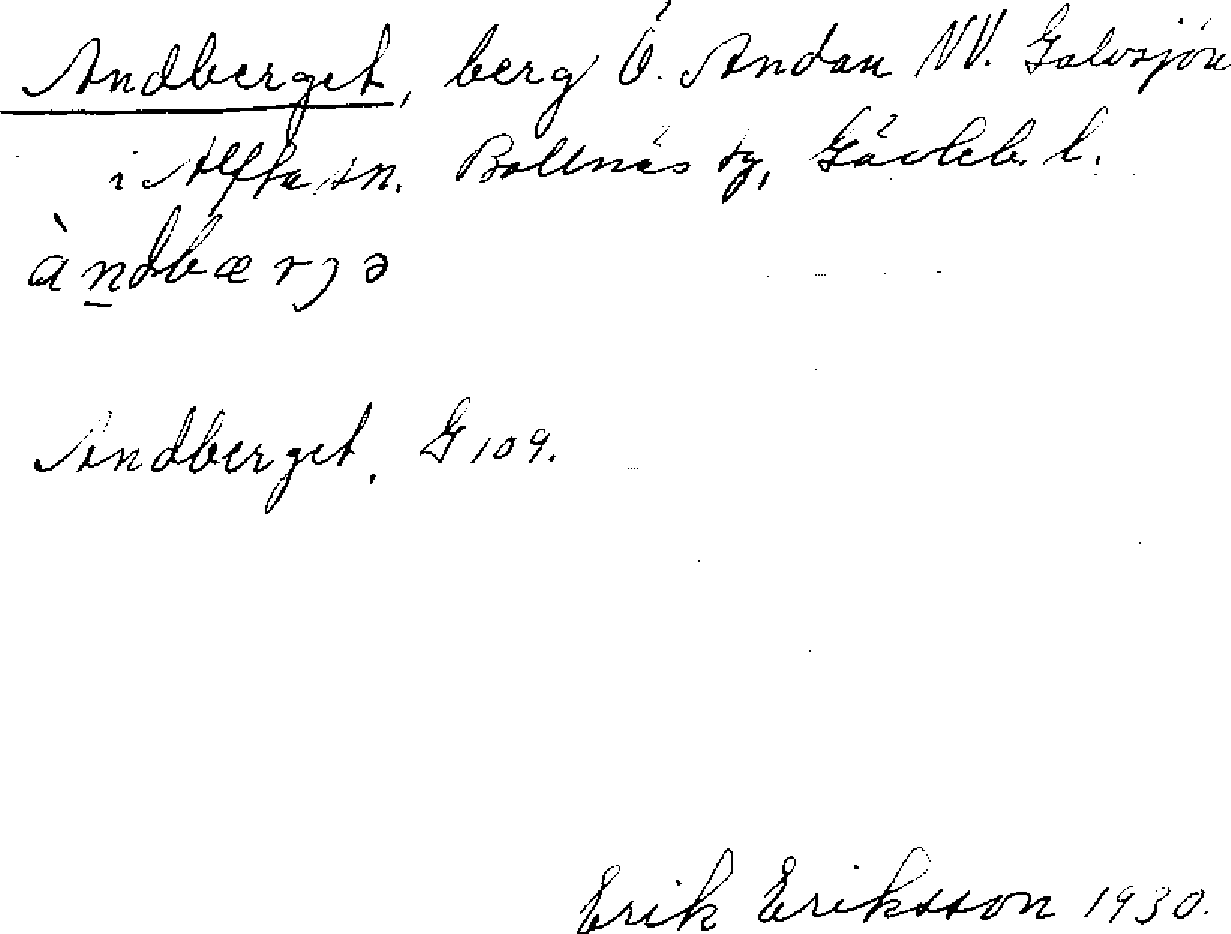 Andberget, berg Ö. Andan NV. Galvsjön
i Alfta sn. Bollnäs tg, Gävleb. l.
àn̲dbærjə
Andberget. G 109.
Erik Eriksson 1930.